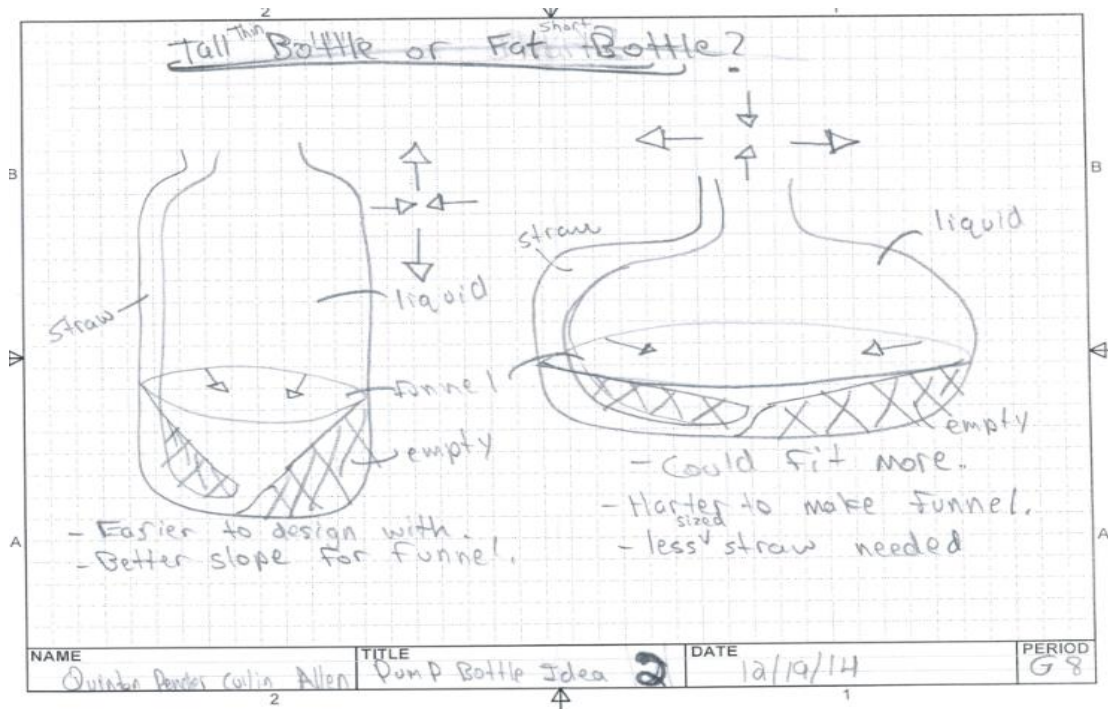 2
Tall Thin Bottle or Fat short Bottle?
B
B
straw
liquid
funnel
empty
- Easier to design with.
- Better slope for funnel.
straw
liquid
empty
- Could fit more.
- Harter to make funnel.
- less sized straw needed
A
A
NAME
Quinton Allen
TITLE
Pump Bottle Idea 2
DATE
12/19/14
PERIOD
G 8
2
1